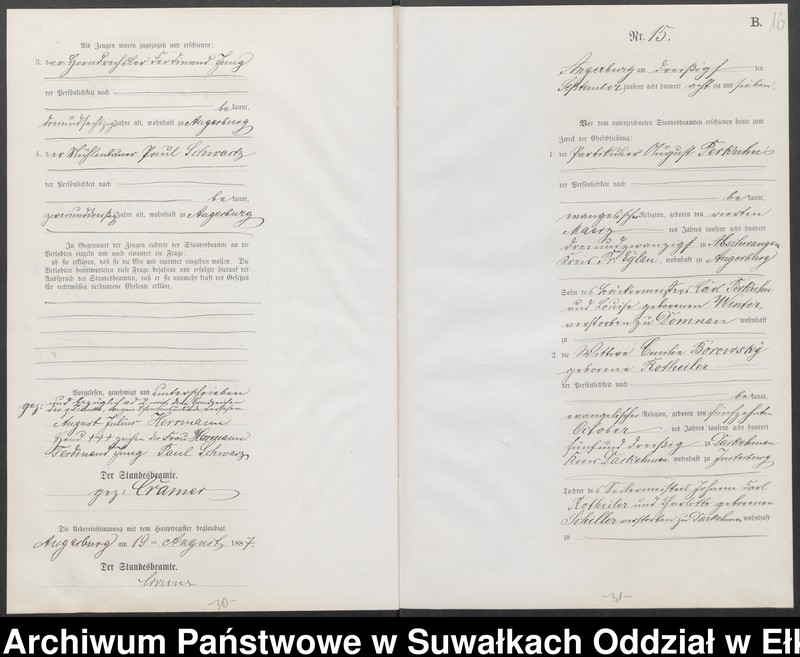 Als Zeugen waren zugezogen und erschienen:
3. der Horndrechsler Ferdinand Jung
der Persönlichkeit nach
be kannt,
dreiundsechzig Jahre alt, wohnhaft zu Angerburg
4. der Mühlenbauer Paul Schwartz
der Persönlichkeit nach
be kannt,
zweiunddreißig Jahre alt, wohnhaft zu Angerburg
In Gegenwart der Zeugen richtete der Standesbeamte an die
Verlobten einzeln und nach einander die Frage:
ob sie erklären, daß sie die Ehe mit einander eingehen wollen. Die
Verlobten beantworteten diese Frage bejahend und erfolgte hierauf der
Ausspruch des Standesbeamten, daß er sie nunmehr kraft des Gesetzes
für rechtmäßig verbundene Eheleute erkläre.
Vorgelesen, genehmigt und unterschrieben
und bezüglich ad 2 mit dem Handzeichen
gez:
August Julius Herrmann
Hand +++ zeichen der Frau Herrmann
Ferdinand Jung Paul Schwarz
Der Standesbeamte.
gez: Cramer
Die Uebereinstimmung mit dem Hauptregister beglaubigt.
Angerburg am 19ten August 1887.
Der Standesbeamte.
Cramer
-30-
B. 16
Nr. 15.
Angerburg am dreißigst den
September tausend acht hundert acht zig und sieben.
Vor dem unterzeichneten Standesbeamten erschienen heute zum
Zweck der Eheschließung:
1. der Partikulier August Terkuhn
der Persönlichkeit nach
be kannt,
evangelischer Religion, geboren den vierten
Maerz des Jahres tausend acht hundert
dreiundzwanzigst zu Abschwangen
Kreis Pr. Eylau, wohnhaft zu Angerburg
Sohn des Bäckermeisters Carl Terkuhn
und Louise geborenen Winter,
verstorben zu Domnau wohnhaft
zu
2. die Wittwe Emilie Borowsky
geborene Rotheiler
der Persönlichkeit nach
be kannt,
evangelischer Religion, geboren den fünfzehnten
October des Jahres tausend acht hundert
fünfunddreißig zu Darkehmen
Kreis Darkehmen, wohnhaft zu Insterburg
Tochter des Seilermeisters Johann Carl
Rotheiler und Charlotte geborenen
Scheller verstorben zu Darkehmen wohnhaft
zu
-31-
Archiwum Państwowe w Suwałkach Oddział w Ełk